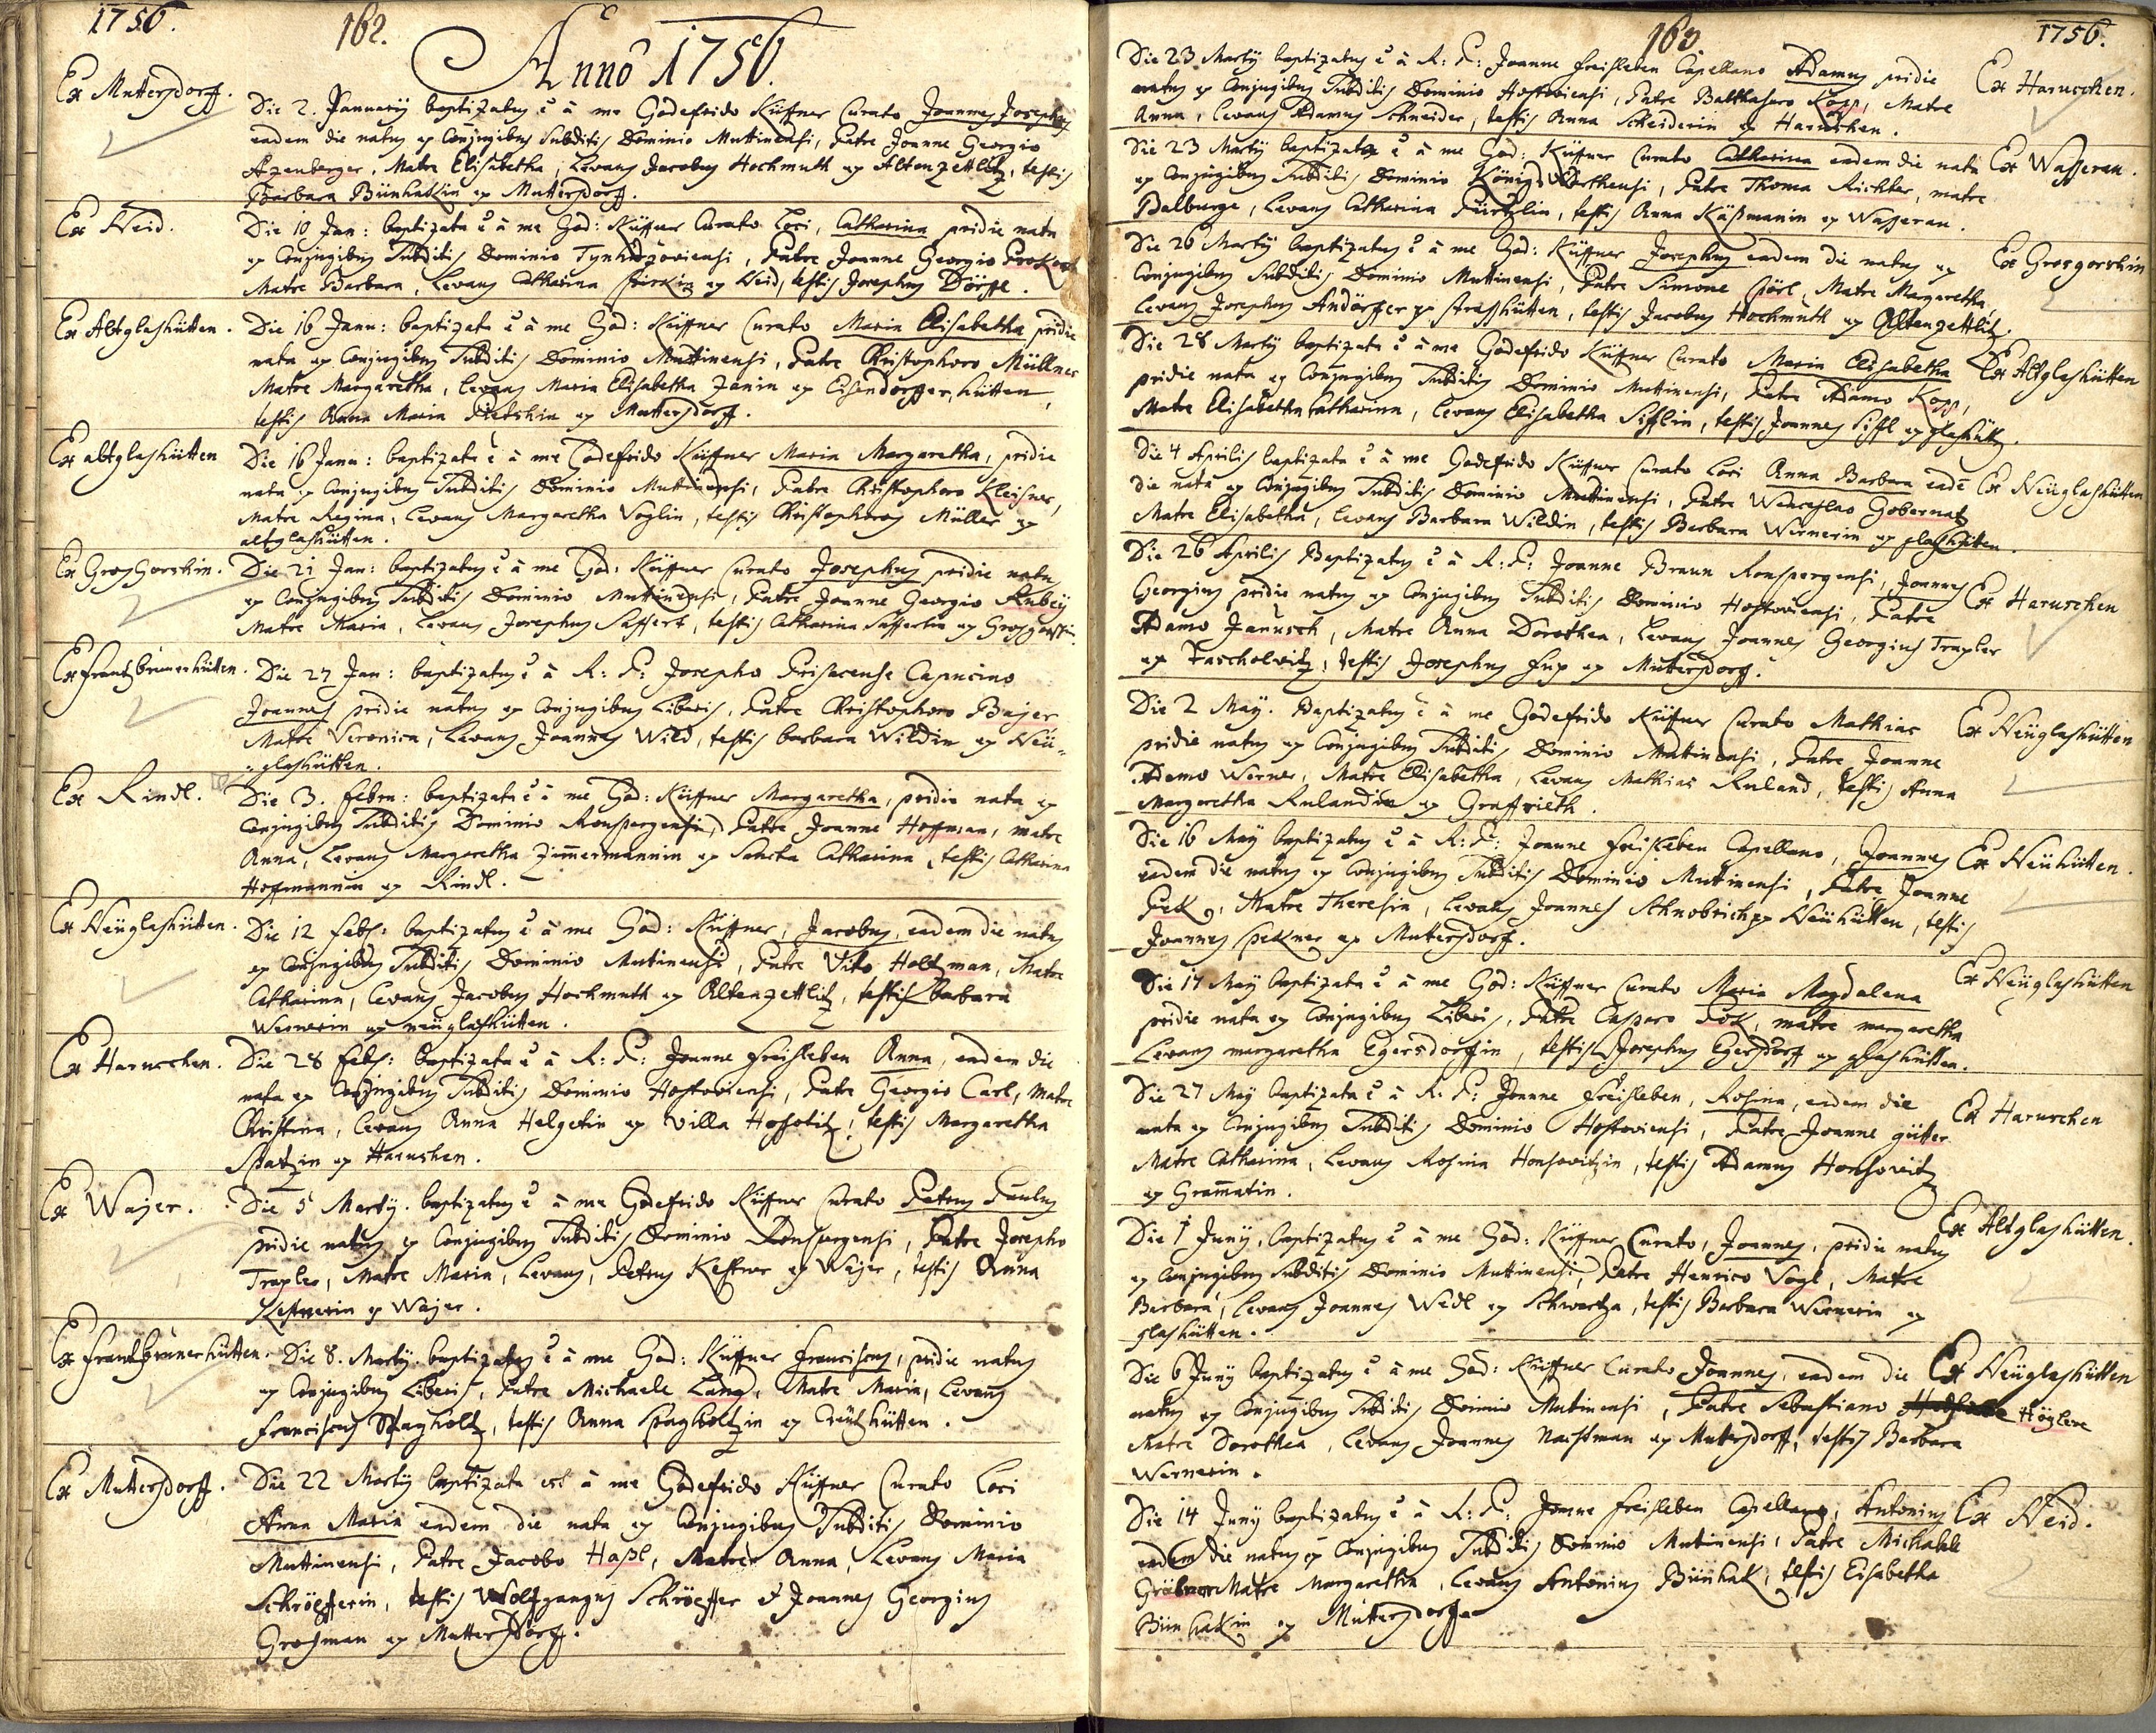 1756.
162.
Anno 1756.
Ex Muttersdorff.
Die 2. Januarÿ baptizatus ē à me Godefrido Küffner Curato Joannes Josephus
eadem die natus ex Conjugibus Subditis Dominio Muttinensi, Patre Joanne Georgio
Azenberger, Matre Elisabetha, Levans Jacobus Hochmuth ex Altenzettlitz, testis
Barbara Bünhakin ex Muttersdorff.
Ex Neid.
Die 10 Jan: baptizata ē à me God: Küffner Curato Loci, Catharina pridie nata
ex Conjugibus Subditis Dominio, Patre Joanne Georgio
Matre Barbara, Levans Catharina ex Neid, testis Josephus Dörfl.
Ex Altglashütten.
Die 16 Janu: baptizata ē à me God: Küffner Curato Maria Elisabetha pridie
nata ex Conjugibus Subditis Dominio Muttinensi, Patre Christophoro Müllner
Matre Margaretha, Levans Maria Elisabetha Janin ex Eisendorffer hütten,
testis Anna Maria ex Muttersdorff.
Ex altglashütten
Die 16 Janu: baptizata ē à me Godefrido Küffner Maria Margaretha, pridie
nata ex Conjugibus Subditis Dominio Muttinensi, Patre Christophoro Kleisner,
Matre Regina, Levans Margaretha Voglin, testis Christophorus Müller ex
altglashütten.
Ex Gros Gorschin.
Die 21 Jan: baptizatus ē à me God: Küffner Curato Josephus pridie natus
ex Conjugibus Subditis Dominio Muttinensi, Patre Joanne Georgio Rubeÿ
Matre Maria, Levans Josephus Saffert, testis Catharina Saffertin ex
Ex frantzbrunerhütten.
Die 27 Jan: baptizatus ē à R: P: Josepho Capucino
Joannes pridie natus ex Conjugibus Liberis, Patre Christophoro Bajer
Matre Veronica, Levans Joannes Wild, testis barbara Wildin ex Neü-
glashütten.
Ex Rindl.
Die 3. Febru: baptizata ē à me God: Küffner Margaretha, pridie nata ex
Conjugibus Subditis Dominio Ronspergensi, Patre Joanne Hoffman, matre
Anna, Levans Margaretha Zimmermannin ex Sancta Catharina, testis Catharina
Hoffmannin ex Rindl.
Ex Neüglashütten.
Die 12 Feb: baptizatus ē à me God: Küffner, Jacobus, eadem die natus
ex Conjugibus Subditis Dominio Mutinensi, Patre Vito Holtzman, Matre
Catharina, Levans Jacobus Hochmuth ex Altenzettlitz, testis Barbara
Wernerin ex neüglashütten.
Ex Haruschen.
Die 28 Feb: baptizata ē à R: P: Joanne Freisleben Anna, eadem die
nata ex Conjugibus Subditis Dominio Hostoviensi, Patre Georgio Carl, Matre
Christina, Levans Anna ex Villa, testis Margaretha
Spatzin ex Haruschen.
Ex Wajer.
Die 5 Martÿ. baptizatus ē à me Godefrido Küffner Curato Petrus Paulus
pridie natus ex Conjugibus Subditis Dominio Ronspergensi, Patre Josepho
Trapler, Matre Maria, Levans, Petrus ex Wajer, testis Anna
ex Wajer.
Ex frantzbrünerhütten.
Die 8. Martÿ. baptizatus ē à me God: Küffner franciscus, pridie natus
ex Conjugibus Liberis, Patre Michaele Lang, Matre Maria, Levans
franciscus Spagholtz, testis Anna Spagholtzin ex
Ex Muttersdorff.
Die 22 Martÿ baptizata est à me Godefrido Küffner Curato Loci
Anna Maria eadem die nata ex Conjugibus Subditis Dominio
Muttinensi, Patre Jacobo Haßl, Matre Anna, Levans Maria
Schröpfferin, testis Wolfgangus Schröpffer & Joannes Georgius
Grosman ex Muttersdorff.
163
1756.
Die 23 Martÿ baptizatus ē à R: P: Joanne Freisleben Capellano Adamus pridie
natus ex Conjugibus Subditis Dominio Hostoviensi, Patre Balthasaro Kopp, Matre
Anna, Levans Adamus Schneider, testis Anna ex Haruschen.
Ex Haruschen.
Die 23 Martÿ baptizata ē à me God: Küffner Curato Catharina eadem die nata
ex Conjugibus Subditis Dominio Königswarthensi, Patre Thoma Richter, matre
Balburga, Levans Catharina, testis Anna Käßmanin ex Wasseran.
Ex Wasseran.
Die 26 Martÿ baptizatus ē à me God: Küffner Josephus eadem die natus ex
Conjugibus Subditis Dominio Muttinensi, Patre Simone, Matre Margaretha,
Levans Josephus Andörffer ex, testis Jacobus Hochmuth ex Altenzettlitz.
Ex Grosgorschin
Die 28 Martÿ baptizata ē à me Godefrido Küffner Curato Maria Elisabetha
pridie nata ex Conjugibus Subditis Dominio Muttinensi, Patre Adamo Kopp,
Matre Elisabetha Catharina, Levans Elisabetha Sifflin, testis Joannes Siffl ex
Ex Altglashütten
Die 4 Aprilis baptizata ē à me Godefrido Küffner Curato Loci Anna Barbara eadē
die nata ex Conjugibus Subditis Dominio Muttinensi, Patre Wenceslao Gobernatz
Matre Elisabetha, Levans Barbara Wildin, testis Barbara Wernerin ex glashütten.
Ex Neüglashütten
Die 26 Aprilis Baptizatus ē à R: P: Joanne Braun Ronspergensi, Joannes
Georgius pridie natus ex Conjugibus Subditis Dominio Hostoviensi, Patre
Adamo Janusch, Matre Anna Dorothea, Levans Joannes Georgius Trapler
ex, testis Josephus ex Muttersdorff.
Ex Haruschen
Die 2 Maÿ. Baptizatus ē à me Godefrido Küffner Curato Mathias
pridie natus ex Conjugibus Subditis Dominio Muttinensi, Patre Joanne
Adamo Werner, Matre Elisabetha, Levans Mathias Ruland, testis Anna
Margaretha Rulandin ex Graffrieth.
Ex Neüglashütten
Die 16 Maÿ baptizatus ē à R: P: Joanne Freisleben Capellano, Joannes
eadem die natus ex Conjugibus Subditis Dominio Muttinensi, Patre Joanne
Pek, Matre Theresia, Levans Joannes Schnobrich ex Neühütten, testis
Joannes ex Muttersdorf.
Ex Neühütten.
Die 17 Maÿ baptizata ē à me God: Küffner Curato Maria Magdalena
pridie nata ex Conjugibus Liberis, Patre Casparo, matre margaretha
Levans margaretha Egersdorffin, testis Josephus Egersdorff ex glashütten.
Ex Neüglashütten
Die 27 Maÿ baptizata ē à R: P: Joanne Freisleben, Rosina, eadem die
nata ex Conjugibus Subditis Dominio Hostoviensi, Patre Joanne gütter
Matre Catharina, Levans Rosina Honsovitzin, testis Adamus Honsovitz
ex Gramatin.
Ex Haruschen
Die 1 Junÿ, baptizatus ē à me God: Küffner Curato, Joannes, pridie natus
ex Conjugibus Subditis Dominio Muttinensi, Patre Henrico Vogl, Matre
Barbara, Levans Joannes Wedl ex Schwartza, testis Barbara Wernerin ex
glashütten.
Ex Altglashütten.
Die 6 Junÿ baptizatus ē à me God: Küffner Curato Joannes, eadem die
natus ex Conjugibus Subditis Dominio Mutinensi, Patre Sebastiano Höglere
Matre Dorothea, Levans Joannes Nachtman ex Muttersdorff, testis Barbara
Wernerin.
Ex Neüglashütten
Die 14 Junÿ baptizatus ē à R: P: Joanne Freisleben Capellano, Antonius
eadem die natus ex Conjugibus Subditis Dominio Mutinensi, Patre Michaele
Matre Margaretha, Levans Antonius Bünhak, testis Elsabetha
Bünhakin ex Muttersdorff.
Ex Neid.